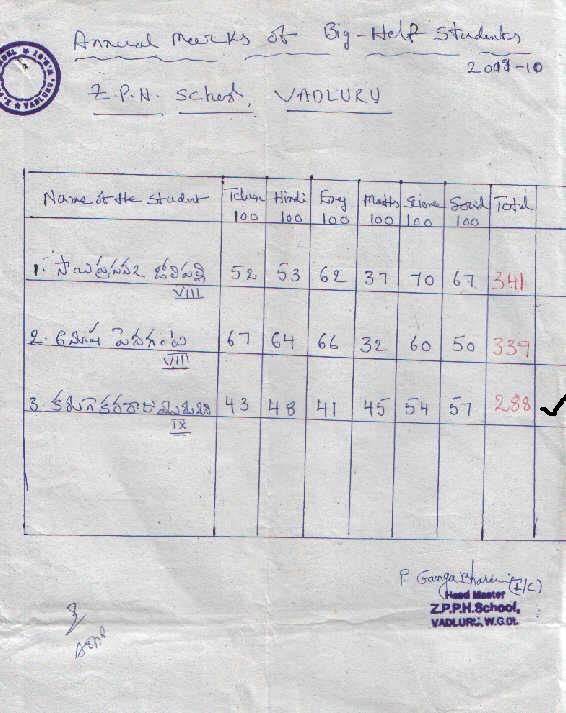 Annual Marks of Big-Help Students
2009-10
Z.P.H. School, VADLURU
Name of the Student Telugu Hindi Eng Maths Science Social Total
100 100 100 100 100 100
1. 52 53 62 37 70 67 341
VIII
2. 67 64 66 32 60 50 339
VIII
3. 43 48 41 45 54 57 288
IX
P. Ganga (I/C)
Head Master
Z.P.P.H.School,
VADLURU, W.G.Dt.